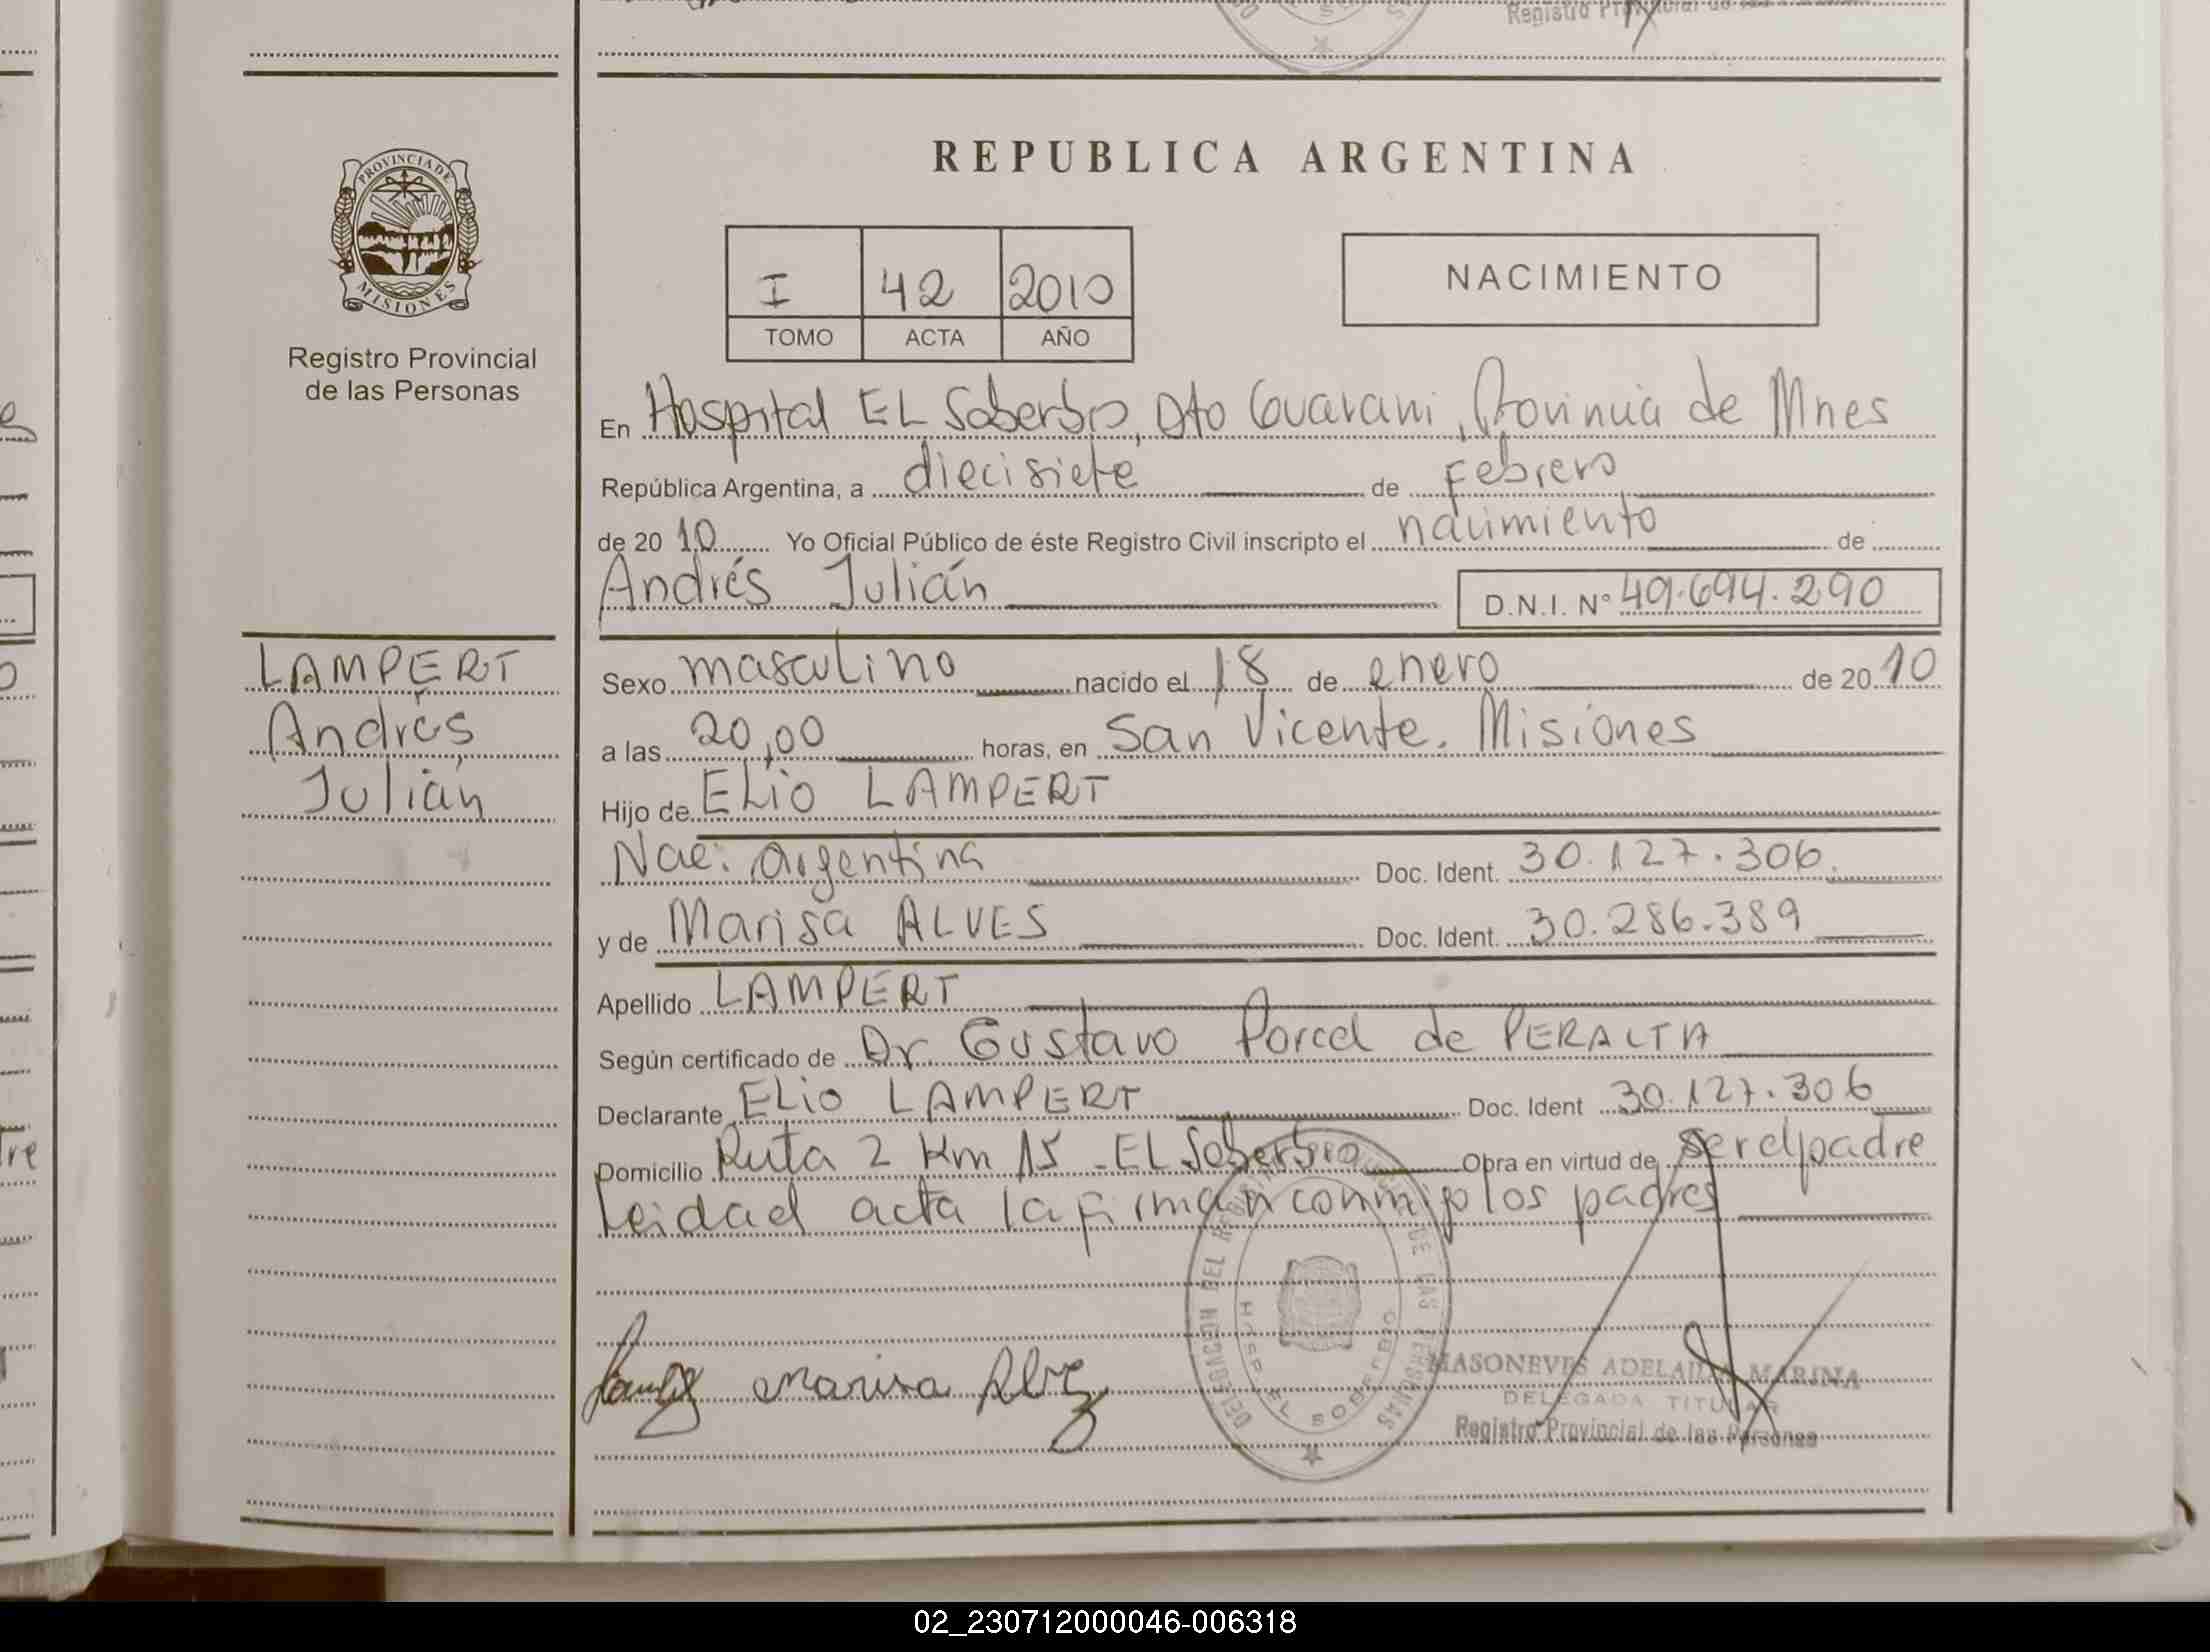 Registro Provincial de las
REPUBLICA ARGENTINA
PROVINCIA DE
MISIONES
Registro Provincial
de las Personas
I 42 2010
TOMO ACTA AÑO
NACIMIENTO
En Hospital EL Soberbio, Dto Guarani, Provincia de Mnes
República Argentina, a diecisiete de Febrero
de 20 10 Yo Oficial Público de éste Registro Civil inscripto el nacimiento de
Andrés Julián D.N.I. Nº 49.694.290
LAMPERT
Andrés
Julián
Sexo masculino nacido el 18 de enero de 20 10
a las 20,00 horas, en San Vicente. Misiones
Hijo de ELio LAMPERT
Nac: argentina Doc. Ident. 30.127.306.
y de Marisa ALVES Doc. Ident. 30.286.389
Apellido LAMPERT
Según certificado de Dr. Gustavo Porcel de PERALTA
Declarante ELio LAMPERT Doc. Ident 30.127.306
Domicilio Ruta 2 Km 15 - EL Soberbio Obra en virtud de ser el padre
Leida el acta la firman conmigo los padres
Marisa Alvez
DELEGACION DEL REGISTRO DE LAS PERSONAS
HOSP. EL SOBERBIO
MASONEVES ADELAIDA MARINA
DELEGADA TITULAR
Registro Provincial de las Personas
02_230712000046-006318